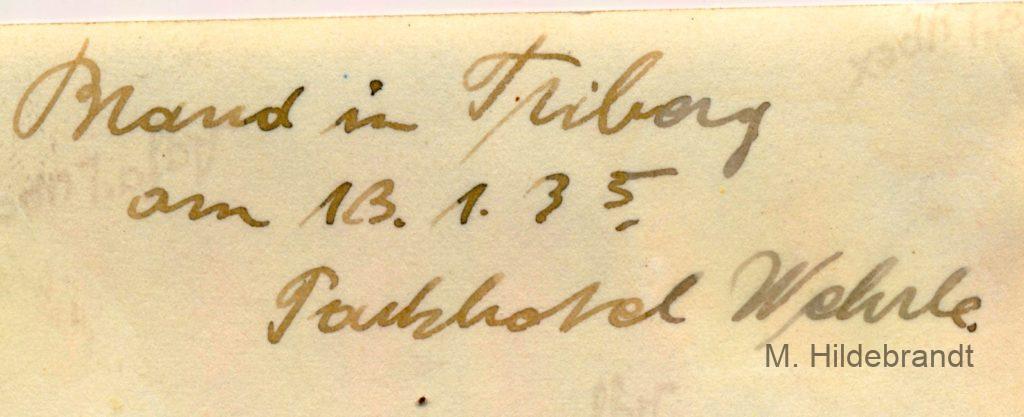 Brand in Triberg
am 13. 1. 35.
Parkhotel Wehrle.
M. Hildebrandt